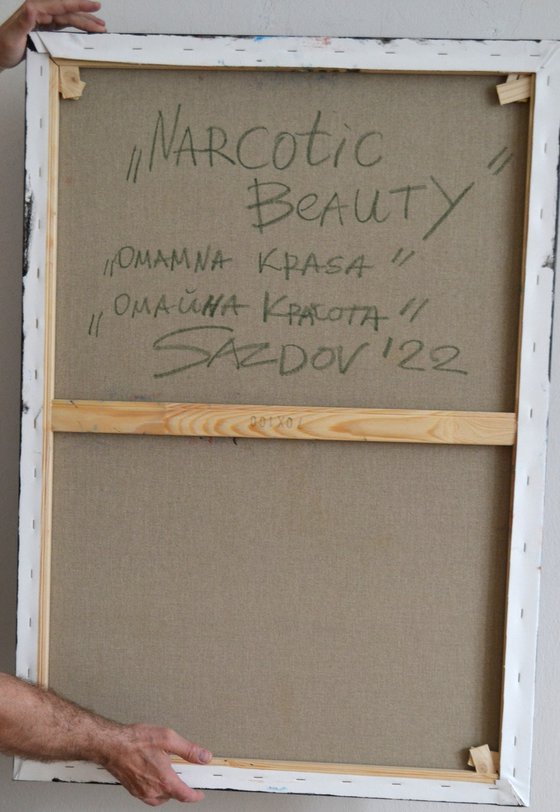 „NARCOTIC
BEAUTY"
„OMAMNA KRASA"
„ОМАЙНА КРАСОТА"
SAZDOV '22
70X100